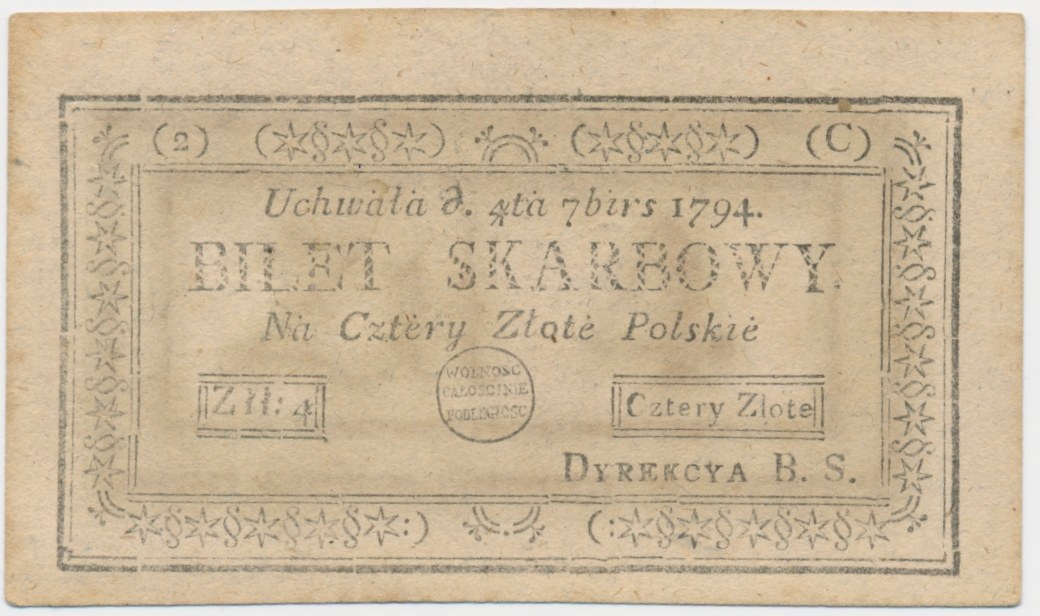 (2) (C)
Uchwała d. 4ta 7birs 1794.
BILET SKARBOWY
Na Cztery Złote Polskie
Z H: 4
WOLNOSC
CAŁOSC I NIE
PODLEGŁOSC
Cztery Zlote
DYREKCYA B. S.